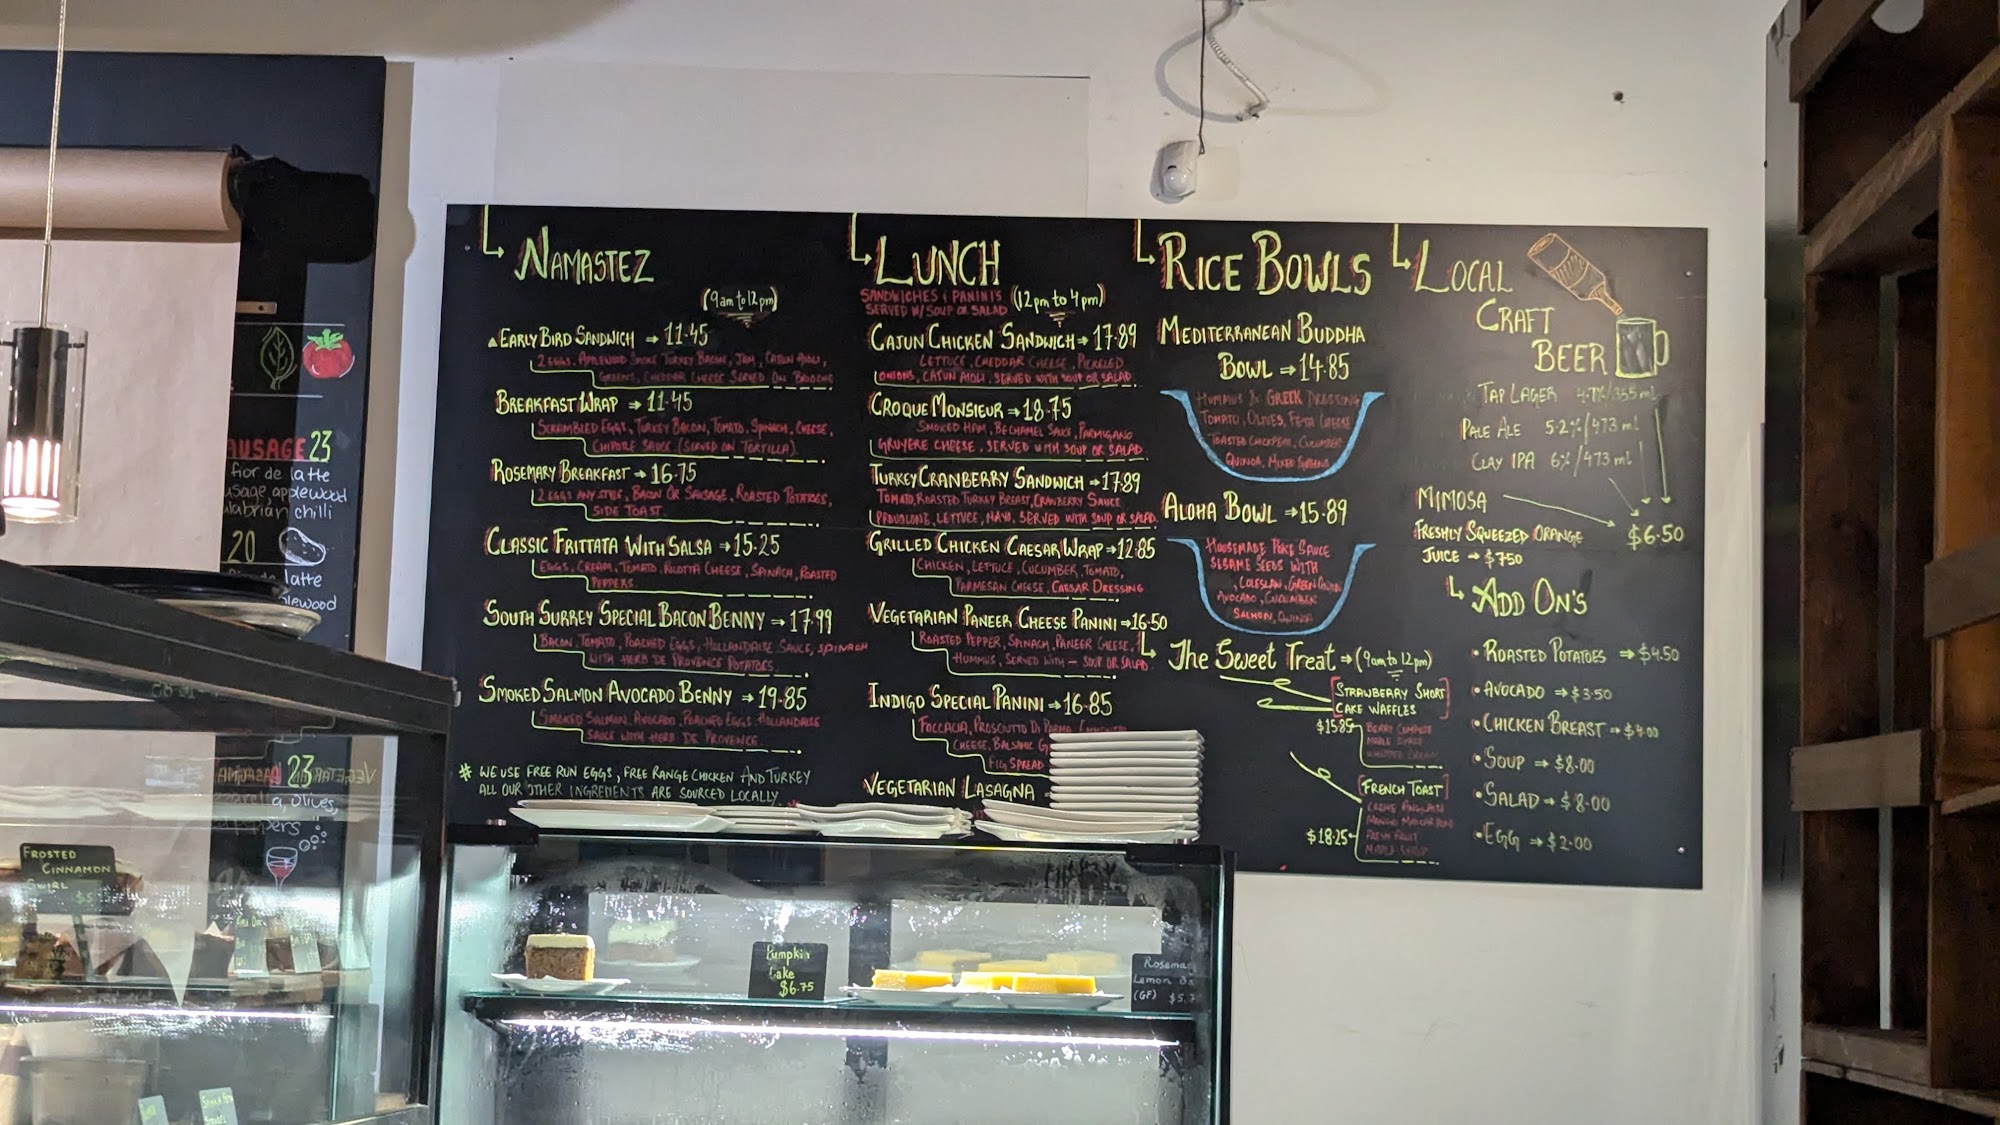 NAMASTEZ
(9am to 12pm)
EARLY BIRD SANDWICH → 11.45
2 EGGS, APPLEWOOD SMOKE TURKEY BACON, JAM, CAJUN AIOLI,
GREENS, CHEDDAR CHEESE SERVED ON BRIOCHE
BREAKFAST WRAP → 11.45
SCRAMBLED EGGS, TURKEY BACON, TOMATO, SPINACH, CHEESE,
CHIPOTLE SAUCE (SERVED ON TORTILLA).
ROSEMARY BREAKFAST → 16.75
2 EGGS ANY STYLE, BACON OR SAUSAGE, ROASTED POTATOES,
SIDE TOAST.
CLASSIC FRITTATA WITH SALSA → 15.25
EGGS, CREAM, TOMATO, RICOTTA CHEESE, SPINACH, ROASTED
PEPPERS.
SOUTH SURREY SPECIAL BACON BENNY → 17.99
BACON, TOMATO, POACHED EGGS, HOLLANDAISE SAUCE, SPINACH
WITH HERB DE PROVENCE POTATOES.
SMOKED SALMON AVOCADO BENNY → 19.85
SMOKED SALMON, AVOCADO, POACHED EGGS HOLLANDAISE
SAUCE WITH HERB DE PROVENCE.
* WE USE FREE RUN EGGS, FREE RANGE CHICKEN AND TURKEY
ALL OUR OTHER INGREDIENTS ARE SOURCED LOCALLY.
LUNCH
SANDWICHES & PANINI'S
SERVED W/ SOUP OR SALAD
(12pm to 4pm)
CAJUN CHICKEN SANDWICH → 17.89
LETTUCE, CHEDDAR CHEESE, PICKLED
ONIONS, CAJUN AIOLI, SERVED WITH SOUP OR SALAD
CROQUE MONSIEUR → 18.75
SMOKED HAM, BECHAMEL SAUCE, PARMIGANO
GRUYERE CHEESE, SERVED WITH SOUP OR SALAD
TURKEY CRANBERRY SANDWICH → 17.89
TOMATO, ROASTED TURKEY BREAST, CRANBERRY SAUCE
PROVOLONE, LETTUCE, MAYO, SERVED WITH SOUP OR SALAD.
GRILLED CHICKEN CAESAR WRAP → 12.85
CHICKEN, LETTUCE, CUCUMBER, TOMATO,
PARMESAN CHEESE, CAESAR DRESSING
VEGETARIAN PANEER CHEESE PANINI → 16.50
ROASTED PEPPER, SPINACH, PANEER CHEESE,
HUMMUS, SERVED WITH — SOUP OR SALAD.
INDIGO SPECIAL PANINI → 16.85
FOCCACIA, PROSCIUTTO DI PARMA,
CHEESE, BALSAMIC
FIG SPREAD
VEGETARIAN LASAGNA
RICE BOWLS
MEDITERRANEAN BUDDHA
BOWL → 14.85
HUMMUS & GREEK DRESSING
TOMATO, OLIVES, FETA CHEESE
TOASTED CHICKPEAS, CUCUMBER
QUINOA, MIXED GREENS
ALOHA BOWL → 15.89
HOUSEMADE POKE SAUCE
SESAME SEEDS WITH
COLESLAW, GREEN ONION
AVOCADO, CUCUMBER
SALMON, QUINOA
The Sweet Treat → (9am to 12pm)
STRAWBERRY SHORT
CAKE WAFFLES
$15.85
BERRY COMPOTE
MAPLE SYRUP
WHIPPED CREAM
[FRENCH TOAST]
CREME ANGLAISE
$18.25
FRESH FRUIT
MAPLE SYRUP
LOCAL
CRAFT
BEER
TAP LAGER 4.7%/355 mL
PALE ALE 5.2%/473 mL
CLAY IPA 6%/473 mL
MIMOSA
$6.50
FRESHLY SQUEEZED ORANGE
JUICE → $7.50
ADD ON'S
• ROASTED POTATOES → $4.50
• AVOCADO → $3.50
• CHICKEN BREAST → $4.00
• SOUP → $8.00
• SALAD → $8.00
• EGG → $2.00
AUSAGE 23
fior de latte
usage, applewood
labrian chilli
20
latte
23
olives,
peppers
FROSTED
CINNAMON
SWIRL
Pumpkin
Cake
$6.75
Lemon
(GF)